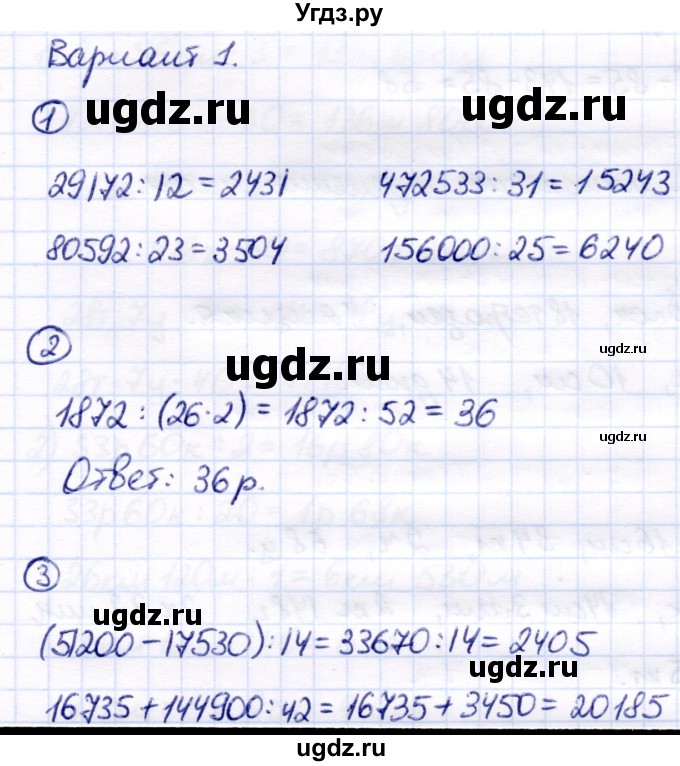 Угдз.ру
Вариант 1.
1 ugdz.ru ugdz.ru
29172:12=2431 472533:31=15243
ugdz.ru
80592:23=3504 156000:25=6240
2
ugdz.ru
1872:(26·2)=1872:52=36
ugdz.ru
Ответ: 36р.
3
ugdz.ru
(51200-17530):14=33670:14=2405
ugdz.ru
16735+144900:42=16735+3450=20185
ugdz.ru